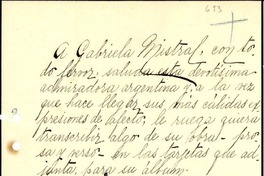 653
A Gabriela Mistral, con to-
do fervor, saluda esta devotísima
admiradora argentina y, a la vez
que hace llegar sus más cálidas ex
presiones de afecto, le ruega quiera
transcribir algo de su obra - pro-
sa y verso - en las tarjetas que ad-
junta, para su álbum.